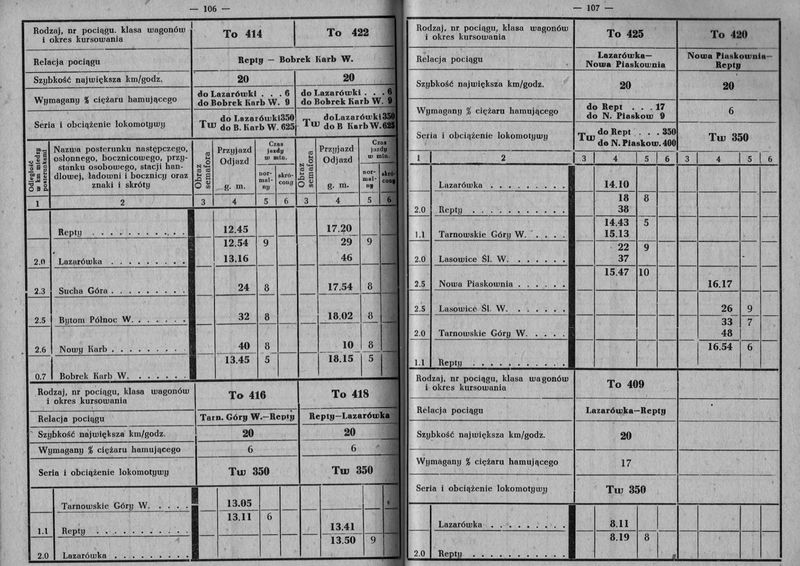 — 106 —
Rodzaj, nr pociągu. klasa wagonów i okres kursowania | To 414 | To 422
Relacja pociągu | Repty — Bobrek Karb W.
Szybkość największa km/godz. | 20 | 20
Wymagany % ciężaru hamującego | do Lazarówki . . . 6 | do Lazarówki . . . 6
do Bobrek Karb W. 9 | do Bobrek Karb W. 9
Seria i obciążenie lokomotywy | Tw do Lazarówki 350 | Tw do Lazarówki 350
do B. Karb W. 625 | do B Karb W. 625
Odległość w km między posterunkami | Nazwa posterunku następczego, osłonnego, bocznicowego, przystanku osobowego, stacji handlowej, ładowni i bocznicy oraz znaki i skróty | Obraz semafora | Przyjazd Odjazd g. m. | Czas jazdy w min. normalny | skrócony | Obraz semafora | Przyjazd Odjazd g. m. | Czas jazdy w min. normalny | skrócony
1 | 2 | 3 | 4 | 5 | 6 | 3 | 4 | 5 | 6
Repty . . . . . . . . . . | 12.45 | 17.20
12.54 | 9 | 29 | 9
2.0 | Lazarówka . . . . . . . . | 13.16 | 46
2.3 | Sucha Góra . . . . . . . . | 24 | 8 | 17.54 | 8
2.5 | Bytom Północ W. . . . . . | 32 | 8 | 18.02 | 8
2.6 | Nowy Karb . . . . . . . . | 40 | 8 | 10 | 8
13.45 | 5 | 18.15 | 5
0.7 | Bobrek Karb W. . . . . . .
Rodzaj, nr pociągu, klasa wagonów i okres kursowania | To 416 | To 418
Relacja pociągu | Tarn. Góry W.—Repty | Repty—Lazarówka
Szybkość największa km/godz. | 20 | 20
Wymagany % ciężaru hamującego | 6 | 6
Seria i obciążenie lokomotywy | Tw 350 | Tw 350
Tarnowskie Góry W. . . . . | 13.05
13.11 | 6
1.1 | Repty . . . . . . . . . . | 13.41
13.50 | 9
2.0 | Lazarówka . . . . . . . .
— 107 —
Rodzaj, nr pociągu, klasa wagonów i okres kursowania | To 425 | To 420
Relacja pociągu | Lazarówka— Nowa Piaskownia | Nowa Piaskownia— Repty
Szybkość największa km/godz. | 20 | 20
Wymagany % ciężaru hamującego | do Rept . . . 17 | 6
do N. Piaskow 9
Seria i obciążenie lokomotywy | Tw do Rept . . . 350 | Tw 350
do N. Piaskow. 400
1 | 2 | 3 | 4 | 5 | 6 | 3 | 4 | 5 | 6
Lazarówka . . . . . . . . | 14.10
18 | 8
2.0 | Repty . . . . . . . . . . | 38
14.43 | 5
1.1 | Tarnowskie Góry W. . . . . | 15.13
22 | 9
2.0 | Lasowice Śl. W. . . . . . . | 37
15.47 | 10
2.5 | Nowa Piaskownia . . . . . | 16.17
2.5 | Lasowice Śl. W. . . . . . . | 26 | 9
33 | 7
2.0 | Tarnowskie Góry W. . . . . | 48
16.54 | 6
1.1 | Repty . . . . . . . . . .
Rodzaj, nr pociągu, klasa wagonów i okres kursowania | To 409
Relacja pociągu | Lazarówka—Repty
Szybkość największa km/godz. | 20
Wymagany % ciężaru hamującego | 17
Seria i obciążenie lokomotywy | Tw 350
Lazarówka . . . . . . . . | 8.11
8.19 | 8
2.0 | Repty . . . . . . . . . .